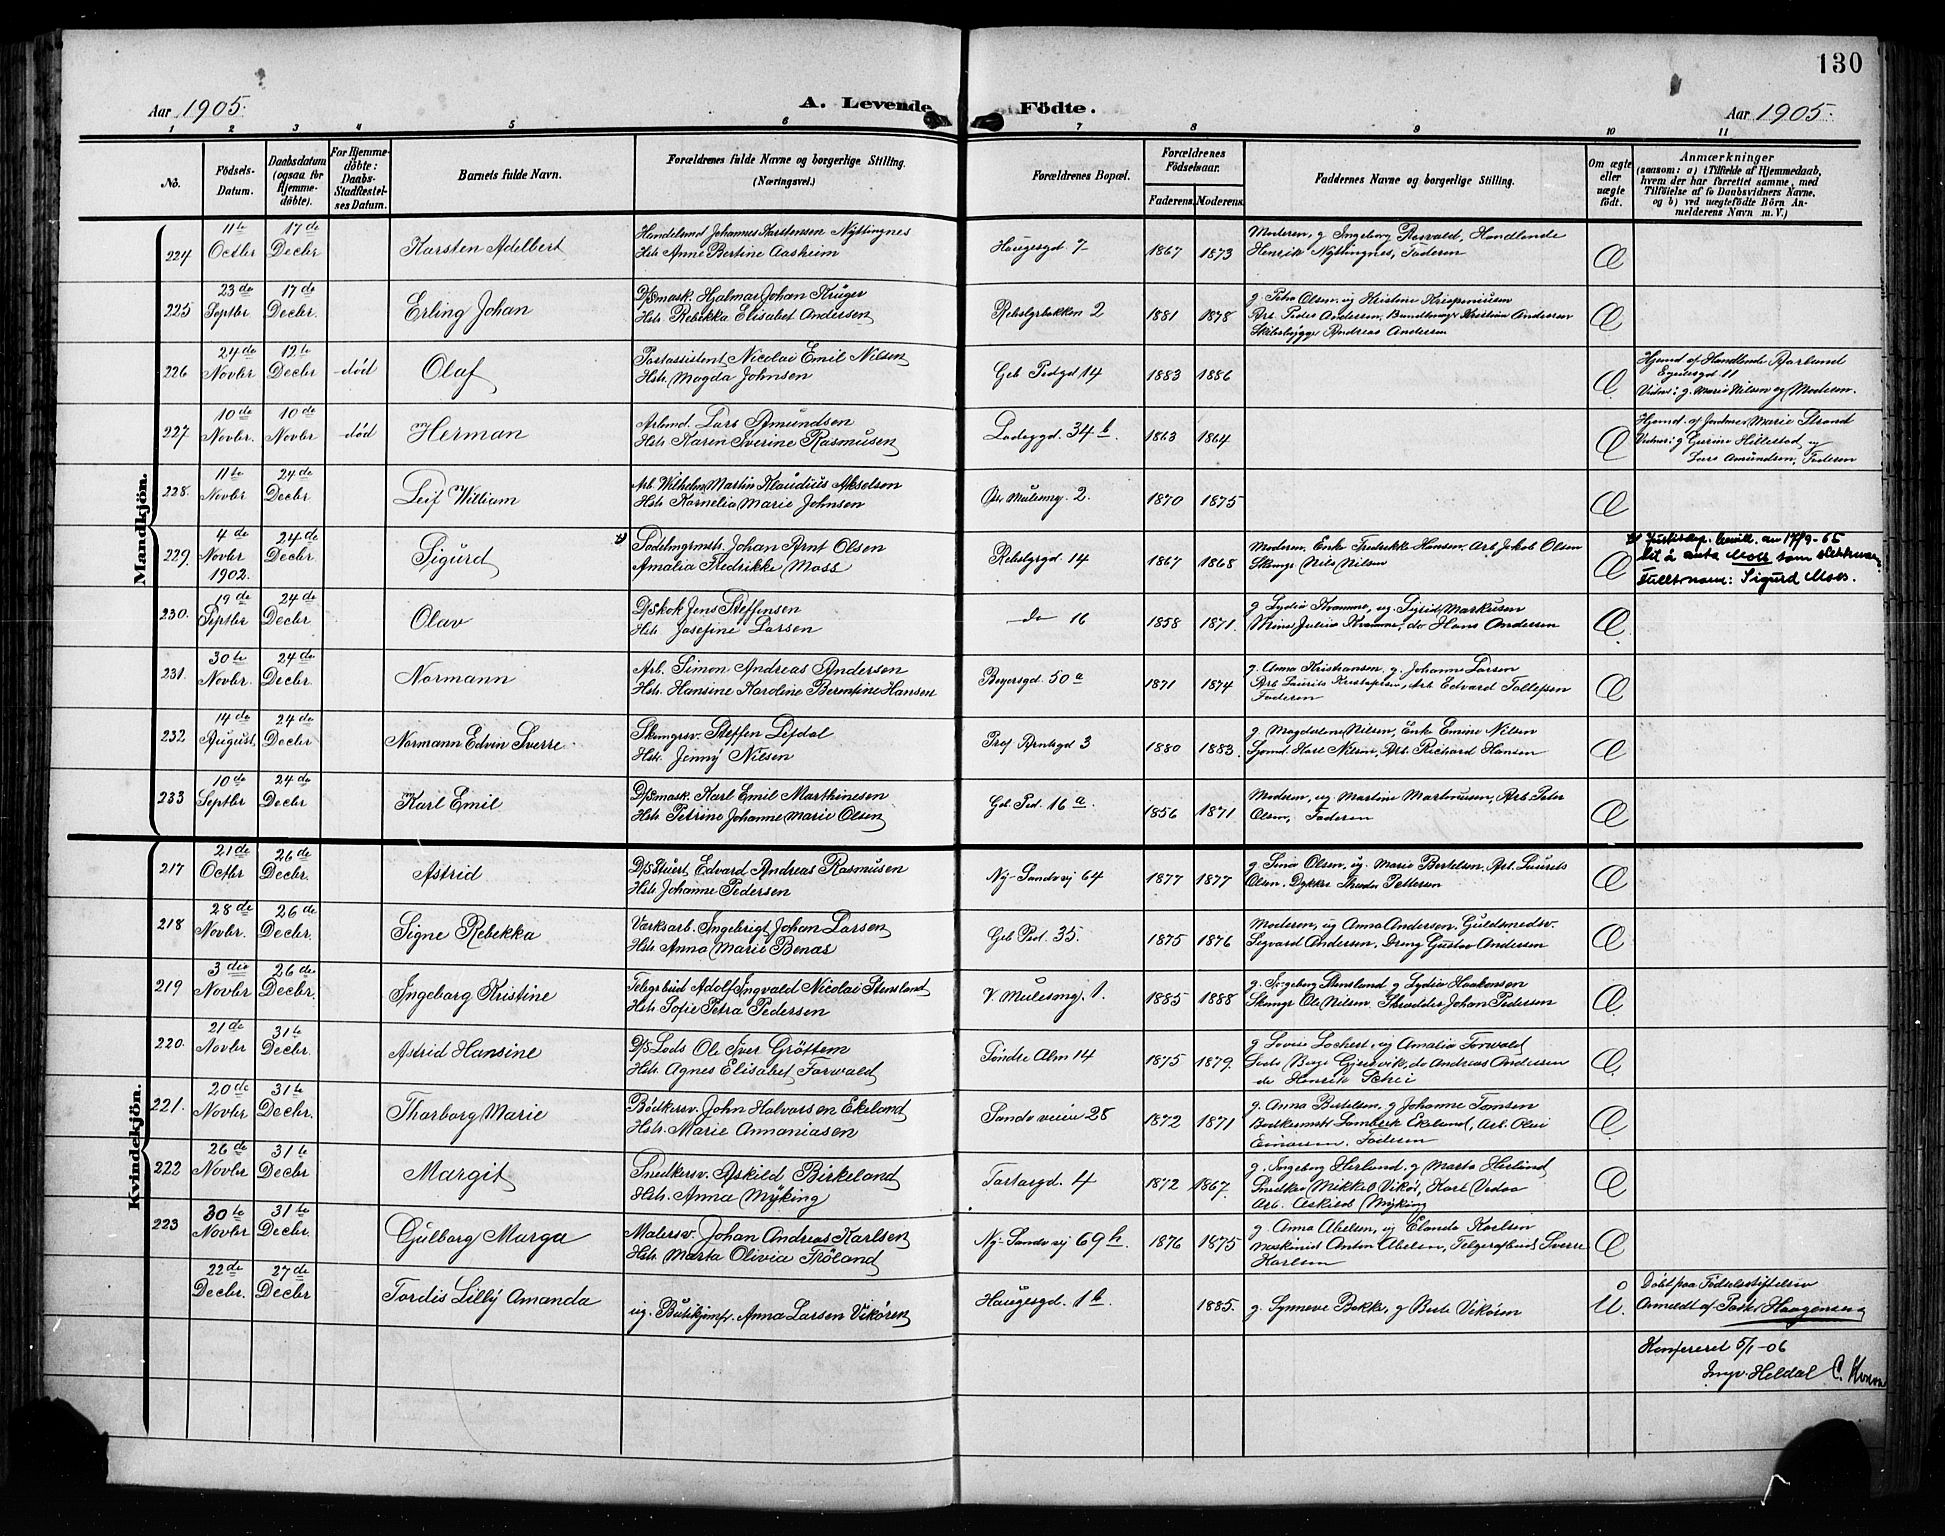 130
Aar 1905.
A. Levende Födte.
Aar 1905.
1 2 3 4 5 6 7 8 9 10 11
No.
Födsels-Datum.
Daabsdatum (ogsaa for Hjemme-döbte).
For Hjemme-döbte: Daabs-Stadfæstel-ses Datum.
Barnets fulde Navn.
Forældrenes fulde Navne og borgerlige Stilling. (Næringsvei.)
Forældrenes Bopæl.
Forældrenes Födselsaar.
Faderens. Moderens.
Faddernes Navne og borgerlige Stilling.
Om ægte eller uægte födt.
Anmærkninger
(saasom: a) i Tilfælde af Hjemmedaab, hvem der har forrettet samme, med Tilföielse af to Daabsvidners Navne, og b) ved uægtefödte Börn An-melderens Navn m. V.)
Mandkjön.
224 11te Octbr 17de Decbr Karsten Adelbert
Handelsmd Johannes Karstensen Nyttingnes
Hstr Anne Bertine Aasheim
Haugesgd 7 1867 1873
Moderen, g Ingeborg Roswald, Handlende
Henrik Nyttingnes, Faderen
Æ
225 23de Septbr 17de Decbr Erling Johan
D/Smask. Hjalmar Johan Krüger
Hstr Rebekka Elisabet Andersen
Rebslgrbakken 2 1881 1878
g. Petra Olsen, ug Kristine
Arb. Peder Andersen, Kristian Andersen
Skibsbygge Andreas Andersen
Æ
226 24de Novbr 12te Decbr død Olaf
Postassistent Nicolai Emil Nilsen
Hstr. Magda Johnsen
Geb Pedgd 14 1883 1886
Æ
Hjemd af Handlende Aarland
Egedesgd 11
Vidner: g. Marie Nilsen og Moderen.
227 10de Novbr. 10de Novbr død Herman
Arbmd. Lars Amundsen
Hstr Karen Sverine Rasmussen
Ladeggd. 34 b. 1863 1864
Æ
Hjemd. af Jordmor Marie Strand
Vidner: g Gurine Hillestad og
Lars Amundsen, Faderen
228. 11te Novbr 24de Decbr Leif William
Arb. Wilhelm Martin Klaudius Akselsen
Hstr Kornelia Marie Johnsen
Mulesmg. 2. 1870 1875
Æ
229. 4de Novbr 1902. 24de Decbr Sigurd
Sadelmgrmstr. Johan Arnt Olsen
Amalia Fredrikke Moss
Rebslgrgd 14 1867 1868
Moderen, Enke Fredrikke Hansen, Arb Jakob Olsen
Skomgr Nils Nilsen
Æ
Justisdep. bevill. av 17/9-65
til å anta Moss som slektsnavn.
Fullt navn: Sigurd Moss.
230. 19de Septbr 24de Decbr Olav
D/Skok Jens Steffensen
Hstr Josefine Larsen
do 16 1858 1871.
g Lydia Kvamme, ug. Sigrid Markusen
Julius Kvamme, do Hans Andersen
Æ
231. 30te Novbr. 24de Decbr. Normann
Arb. Simon Andreas Andersen
Hstr. Hansine Karoline Berentine Hansen
Beyersgd. 50 a 1871 1874
g. Anna Kristiansen, g. Johanne Larsen
Arb Laurits Kristofersen, Arb. Edvard Tollefsen
Faderen
Æ
232 14de August 24de Decbr Normann Edvin Sverre
Skomgrsv. Steffen Lifdal
Hstr. Jenny Nilsen
Prof Arntsgd 3 1880 1883.
g. Magdalene Nilsen, Enke Emine Nilsen
Sjømd. Karl Nilsen, Arb. Richard Hansen
Æ
233 10de Septbr 24de Decbr Karl Emil
D/Smask. Karl Emil Marthinesen
Hstr Petrine Johanne Marie Olsen
Geb. Ped. 16 a. 1856 1871
Moderen, ug. Martine Martinusen, Arb. Peter
Olsen, Faderen
Æ
Kvindekjön.
217 21de Octbr 26de Decbr. Astrid
D/S Stuert Edvard Andreas Rasmusen
Hstr Johanne Pedersen
Ny-Sandvvj 64 1877 1877
g. Sina Olsen, ug. Marie Bertelsen, Arb. Laurits
Olsen, Dykker Theodor Pettersen
Æ
218 28de Novbr. 26de Decbr. Signe Rebekka
Værksarb. Ingebrigt Johan Larsen
Hstr Anna Marie Benas
Geb Ped. 35. 1875 1876
Moderen, ug Anna Andersen, Guldsmedsv.
Sigvard Andersen, Dreng Gustav Andersen
Æ
219 3die Novbr 26de Decbr. Ingeborg Kristine
Telegrbud Adolf Ingvald Nicolai Stensland
Hstr. Sofie Petra Pedersen
V. Mulesmg. 1. 1885 1888
g. Ingeborg Stensland g Lydia Haakonsen
Skomgr Ole Nilsen, Skrædder Johan Pedersen
Æ
220. 21de Novbr 31te Decbr. Astrid Hansine
D/S Lods Ole Iver Gröttem
Hstr. Agnes Elisabet Forwald
Söndre Alm 14 1875 1879.
g Lovise Lochert, ug Amalia Forwald
Lods Berge Gjesdvik, do Andreas Andersen
do Henrik Schei
Æ
221. 20de Novbr 31te Decbr. Tharborg Marie
Bödkersv. John Halvorsen Ekeland
Hstr. Marie Annaniasen
Sandvveien 28 1872 1871
g. Anna Bertelsen, g Johanne Tomsen
Bødkermstr Ekeland, Arb. Olai
Einarsen, Faderen
Æ
222 26de Novbr 31te Decbr Margit
Snedkersv. Askild Birkeland
Hstr. Anna Myking
Tartargd. 4 1872 1867.
g. Ingeborg Herlund, g Marta Herlund
Snedker Mikkel Vikör, Karl Vedaa
Arb. Askild Myking
Æ
223 30te Novbr 31te Decbr Gulborg Marga
Malersv. Johan Andreas Karlsen
Hstr. Marta Olivia Fröland
Ny-Sandvvj 69 h. 1876 1875
g. Anna Abelsen, ug Elanda Karlsen
Maskinist Anton Abelsen, Telgrafbud Sverre
Karlsen
Æ
22de Decbr. 27de Decbr Tordis Lilly Amanda
ug. Butikjmfr. Anna Larsen Vikören
Haugesgd. 1 b. 1885.
g. Synneve Bakke, g Berte Vikören
U.
Döbt paa Födselsstiftelsen
Anmeldt af Pastor Haagensen
Konfereret 5/1-06
Ingv. Heldal C. Kvam